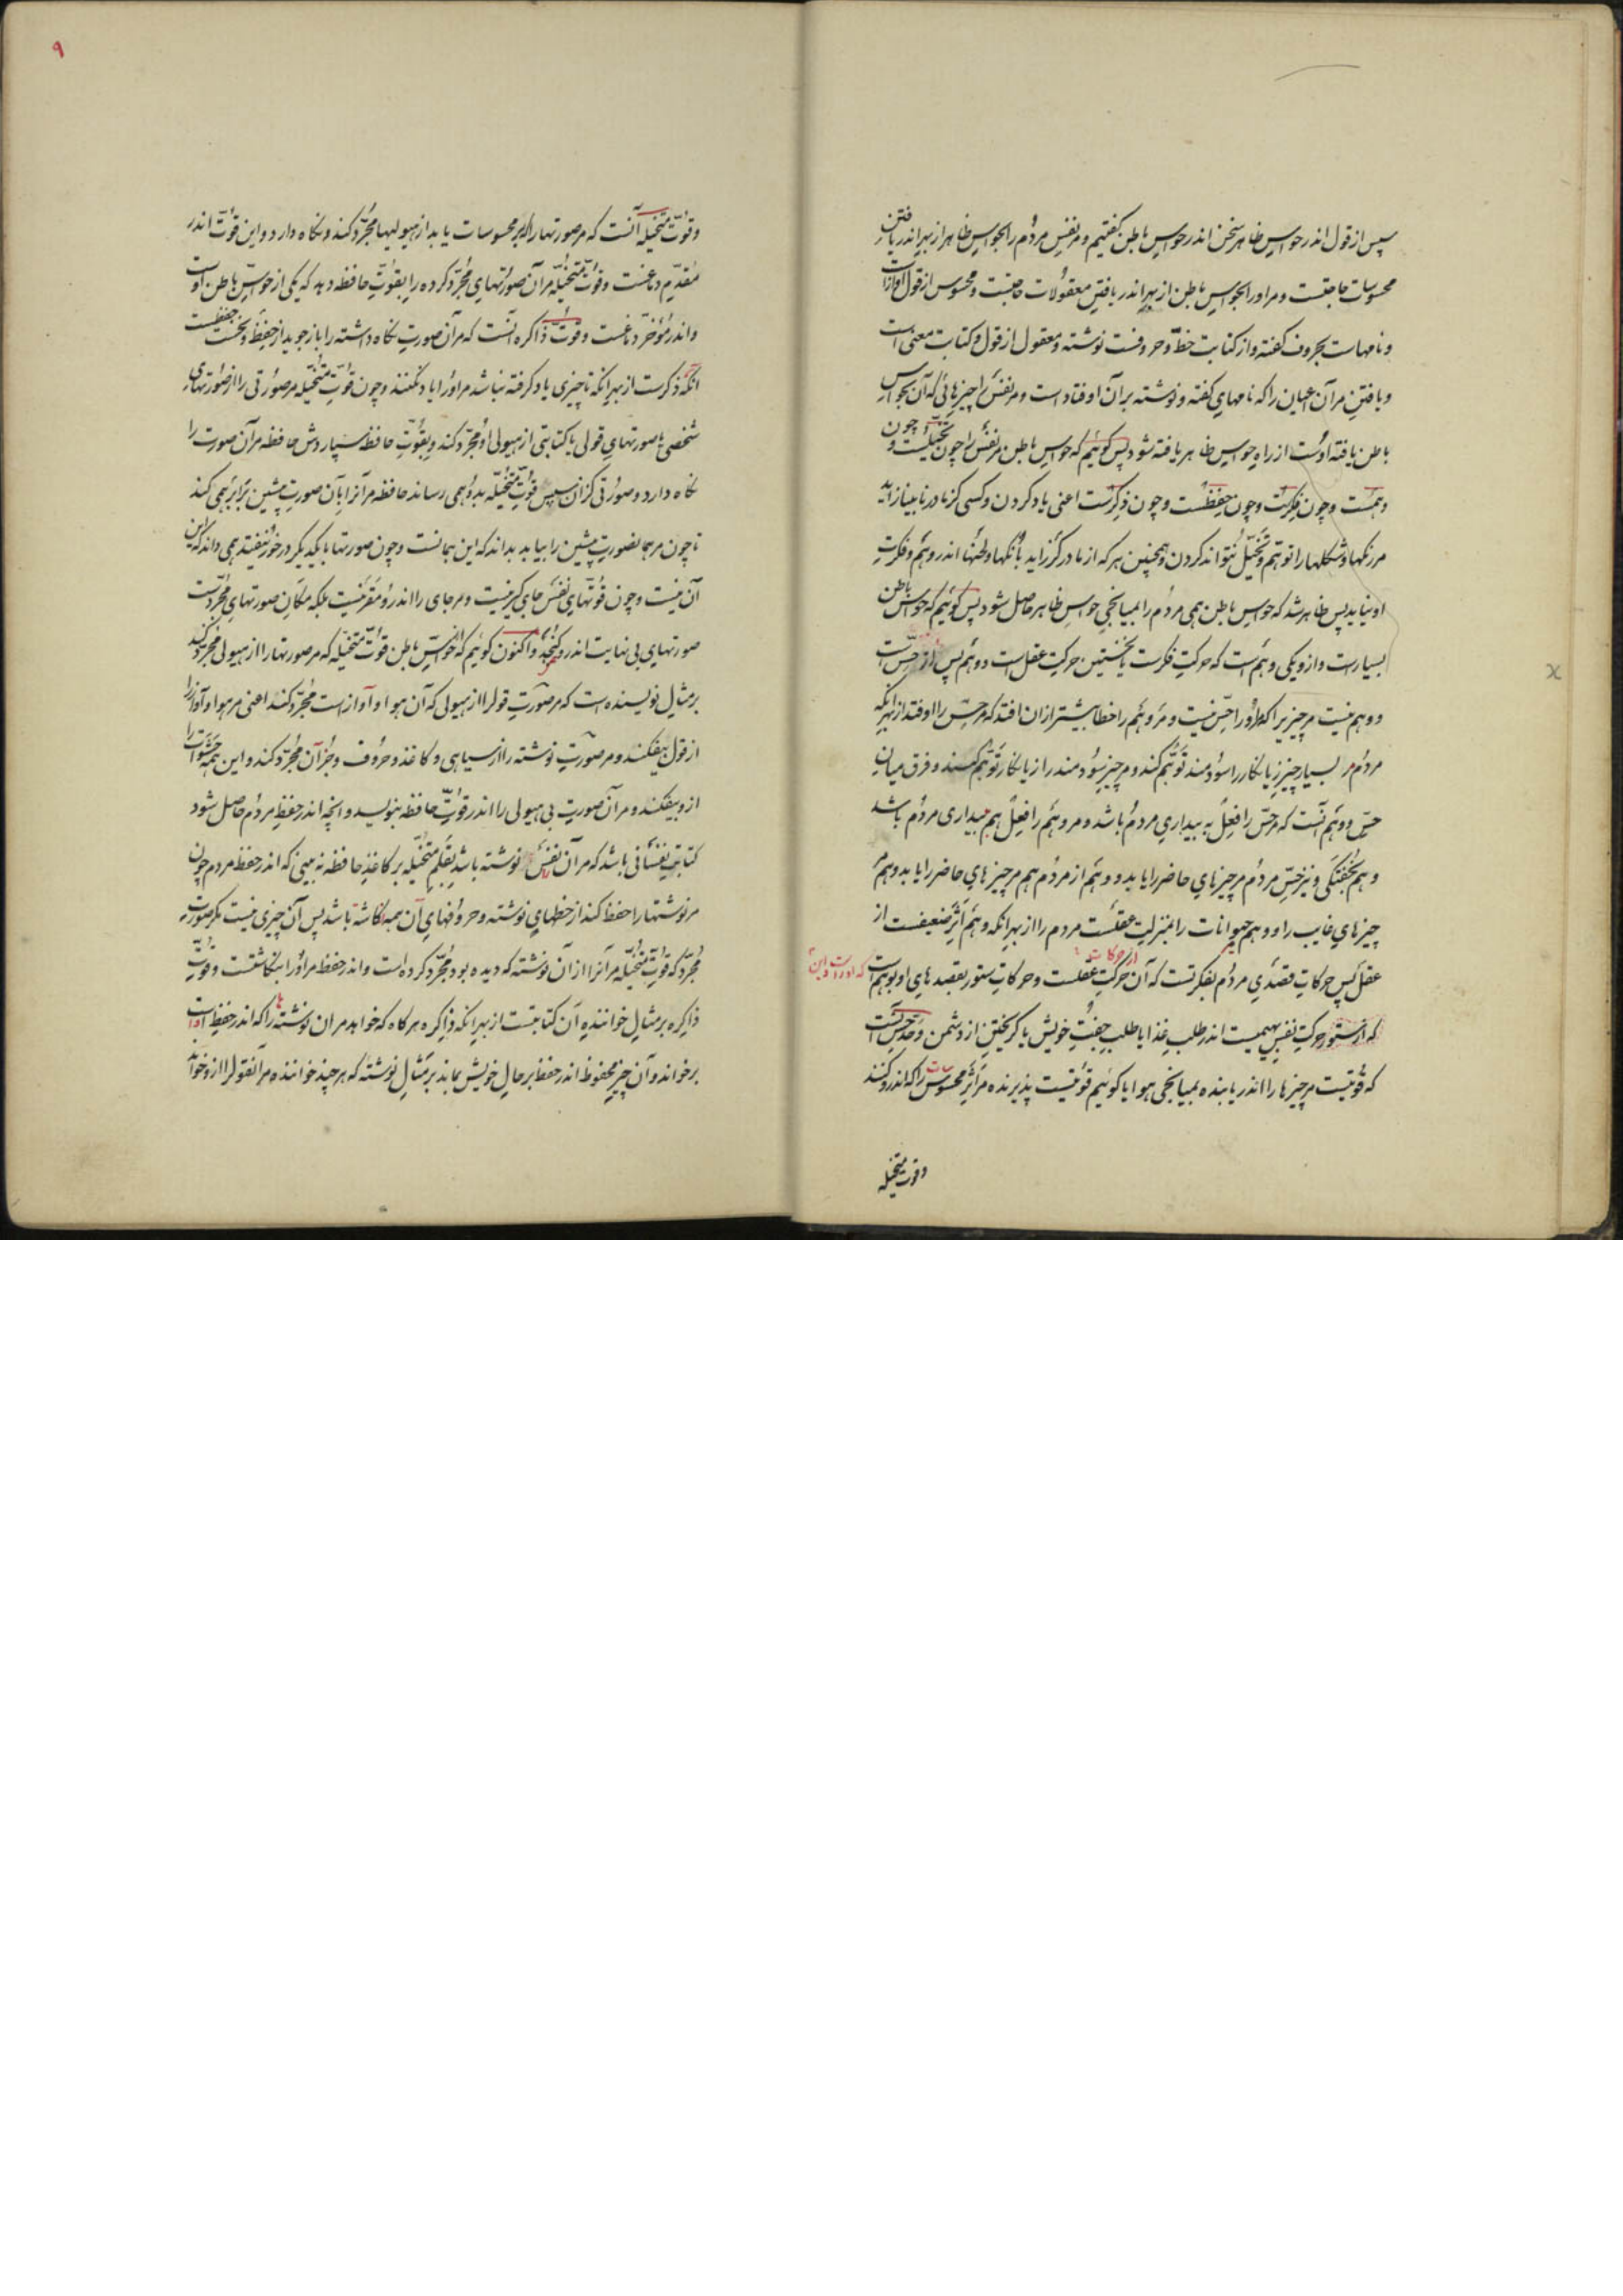 سپس از قول اندر حواس ظاهر سخن اندر حواس باطن گفتیم و مر نفس مردم را بحواس ظاهر از بهر اندر یافتن
محسوسات حاجتست و مر او را بحواس باطن از بهر اندر یافتن معقولات حاجتست و محسوس از قول آوازاست
و نامهاست بحروف گفته و از کتابت خط و حروفست نوشته و معقول از قول و کتابت معنی است
و یافتن مر آن اعیان را که نامهای گفته و نوشته بر آن اوفتاده است و مر نفس را چیزهائی که آن بحواس
باطن یافته اوست از راه حواس ظاهر یافته شود پس گوئیم که حواس باطن مر نفس را چون تخیلست و چون
وهمست و چون فکرتست و چون حفظست و چون ذکرست اعنی یاد کردن و کسی کز مادر نابینا زاید
مر رنگها و شکلها را توهم و تخیل نتواند کردن و همچنین هر که از مادر کر زاید بانگها و لحنها اندر وهم و فکرت
او نیاید پس ظاهر شد که حواس باطن همی مردم را بمیانجی حواس ظاهر حاصل شود پس گوئیم که حواس باطن
بسیارست و ازو یکی وهم است که حرکت فکرت یا نخستین حرکت عقل است و وهم پس از حس است
و وهم نیست مر چیزیرا که مر او را حس نیست و مر وهم را خطا بیشتر از ان افتد که مر حس را اوفتد از بهر انکه
مردم مر بسیار چیز زیانکار را سودمند توهم کند و مر چیز سودمند را زیانکار توهم کند و فرق میان
حس و وهم آنست که مر حس را فعل به بیداری مردم باشد و مر وهم را فعل هم ببیداری مردم باشد
و هم بخفتگی و نیز حس مردم مر چیزهای حاضر را یابد و وهم از مردم هم مر چیزهای حاضر را یابد و هم
چیزهای غایب را و وهم حیوانات را بمنزلت عقلست مردم را از بهر انکه وهم اثر ضعیفست از
عقل پس حرکات قصدی مردم بفکرتست که آن حرکت عقلست و حرکات ستور بقصدهای او بوهم است
از حرکات
که از ستور حرکت نفس بهیمیست اندر طلب غذا یا طلب جفت خویش یا گریختن از دشمن و حد حس آنست
که قوتیست مر چیزها را اندر یابنده بمیانجی هوا یا گوئیم قوتیست پذیرنده مر اثر محسوسات را که اندرو کنند
وقوت متخیله
۹
و قوت متخیله آنست که مر صورتها را که بر محسوسات یابد از هیولیها مجرد کند و نگاه دارد و این قوت اندر
مقدم دماغست و قوت متخیله مر آن صورتهای مجرد کرده را بقوت حافظه دهد که یکی از حواس باطن اوست
و اندر مؤخر دماغست و قوت ذاکره آنست که مر آن صورت نگاه داشته را باز جوید از حفظ و نخست حفظست
انگه ذکرست از بهر انکه تا چیزی یاد گرفته نباشد مر او را یاد نکنند و چون قوت متخیله مر صورتی را از صورتهای
شخصی یا صورتهای قولی یا کتابتی از هیولی او مجرد کند و بقوت حافظه سپاردش حافظه مر آن صورت را
نگاه دارد و صورتی کز ان سپس قوت متخیله بدو همی رساند حافظه مر آنرا بآن صورت پیشین برابر همی کند
تا چون مر همان صورت پیشین را بیابد بداند که این همانست و چون صورتها با یکدیگر در خور نیفتد همی داند که این
آن نیست و چون قوتهای نفس جای گیر نیست و مر جای را اندرو مقر نیست بلکه مکان صورتهای مجردست
صورتهای بی نهایت اندرو گنجد و اکنون گوئیم که از حواس باطن قوت متخیله که مر صورتها را از هیولی مجرد کند
بر مثال نویسنده است که مر صورت قول را از هیولی که آن هوا و آواز است مجرد کند اعنی مر هوا و آواز را
از قول بیفکند و مر صورت نوشته را از سیاهی و کاغذ و حروف و جز آن مجرد کند و این همه حشوات را
ازو بیفکند و مر آن صورت بی هیولی را اندر قوت حافظه بنویسد و انچه اندر حفظ مردم حاصل شود
کتابت نفسانی باشد که مر آن نفس نوشته باشد بقلم متخیله بر کاغذ حافظه نه بینی که اندر حفظ مردم چون
مر نوشتها را حفظ کند از خطهای نوشته و حروفهای آن همه نگاشته باشد پس آن چیزی نیست مگر صورت
مجرد که قوت متخیله مر آنرا از آن نوشته که دیده بود مجرد کرده است و اندر حفظ مر او را بنگاشتست و قوت
ذاکره بر مثال خواننده آن کتابتست از بهر انکه ذاکره هر گاه که خواهد مر ان نوشتها را که اندر حفظ است
بر خواند و آن چیز محفوظ اندر حفظ بر حال خویش بماند بر مثال نوشته که هر چند خواننده مر آنقول را ازو خواند